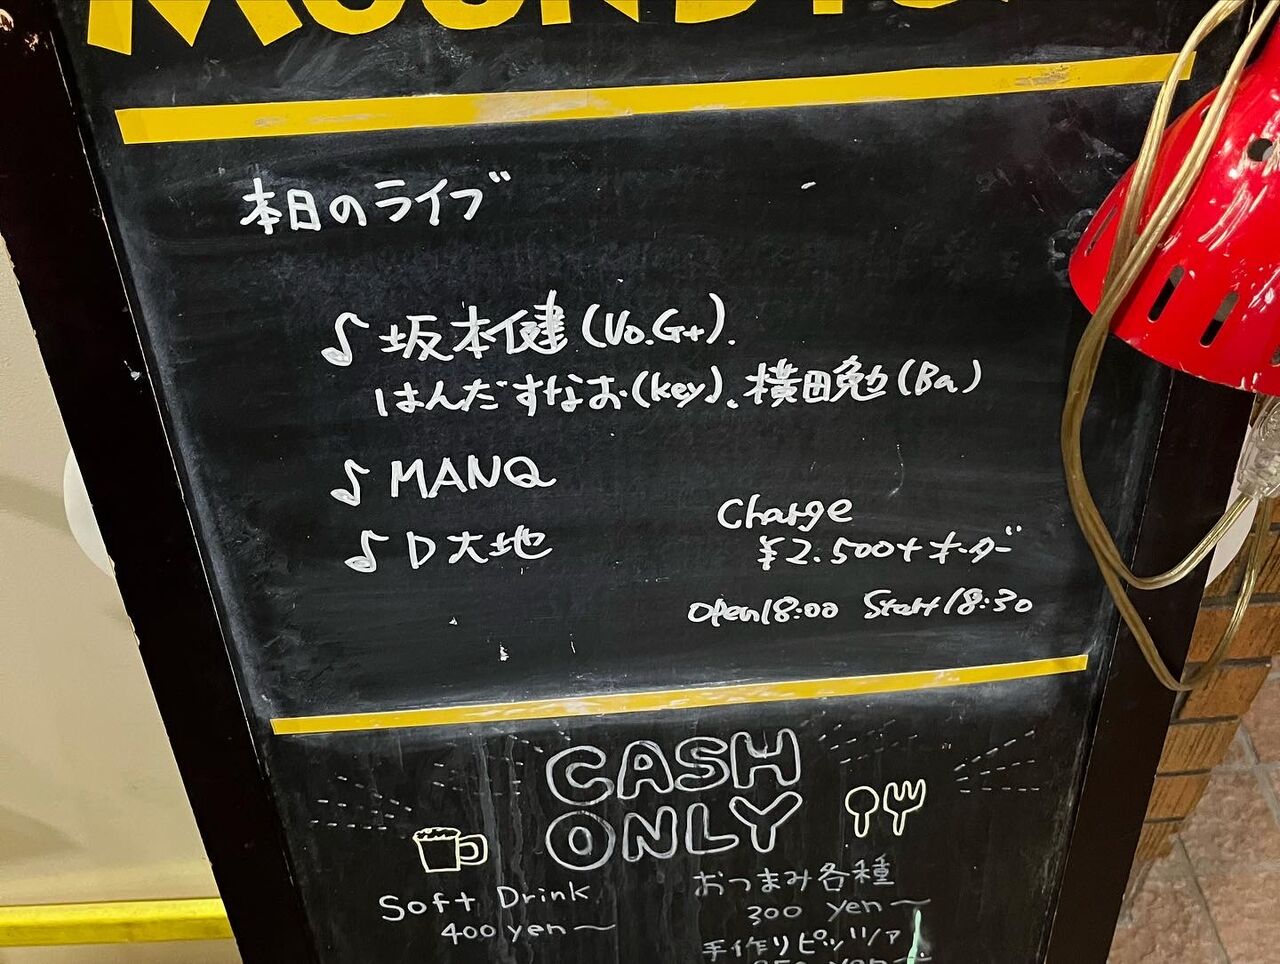 本日のライブ
♪ 坂本健(Vo.Gt).
はんだすなお(key)、横田勉(Ba)
♪ MANQ
♪ D大地
Charge
¥2.500+オーダー
open18:00 Start18:30
CASH
ONLY
Soft Drink
400yen〜
おつまみ各種
300 yen〜
手作りピッツァ